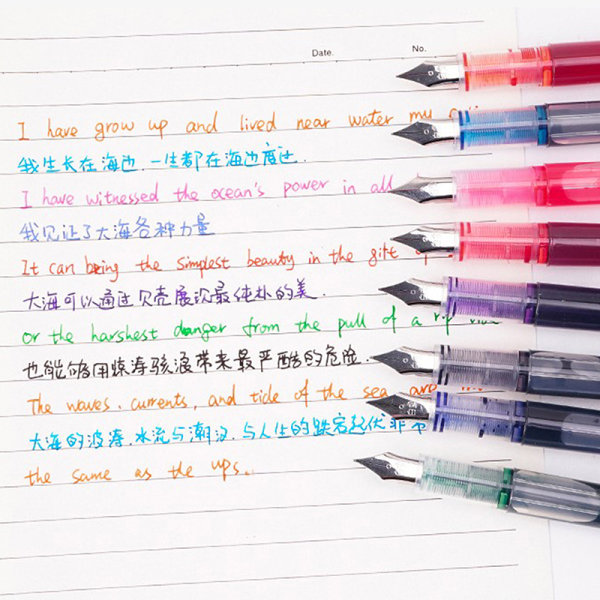 Date. No.
I have grow up and lived near water my
我生长在海边.一生都在海边度过.
I have witnessed the ocean's power in all
我见证了大海各种力量
It can being the simplest beauty in the gift
大海可以通过贝壳展示最纯朴的美.
or the harshest danger from the pull of a rip
也能够用惊涛骇浪带来最严酷的危险.
The waves. currents, and tide of the sea are
大海的波涛.水流与潮汐.与人生的跌宕起伏非常
the same as the ups.